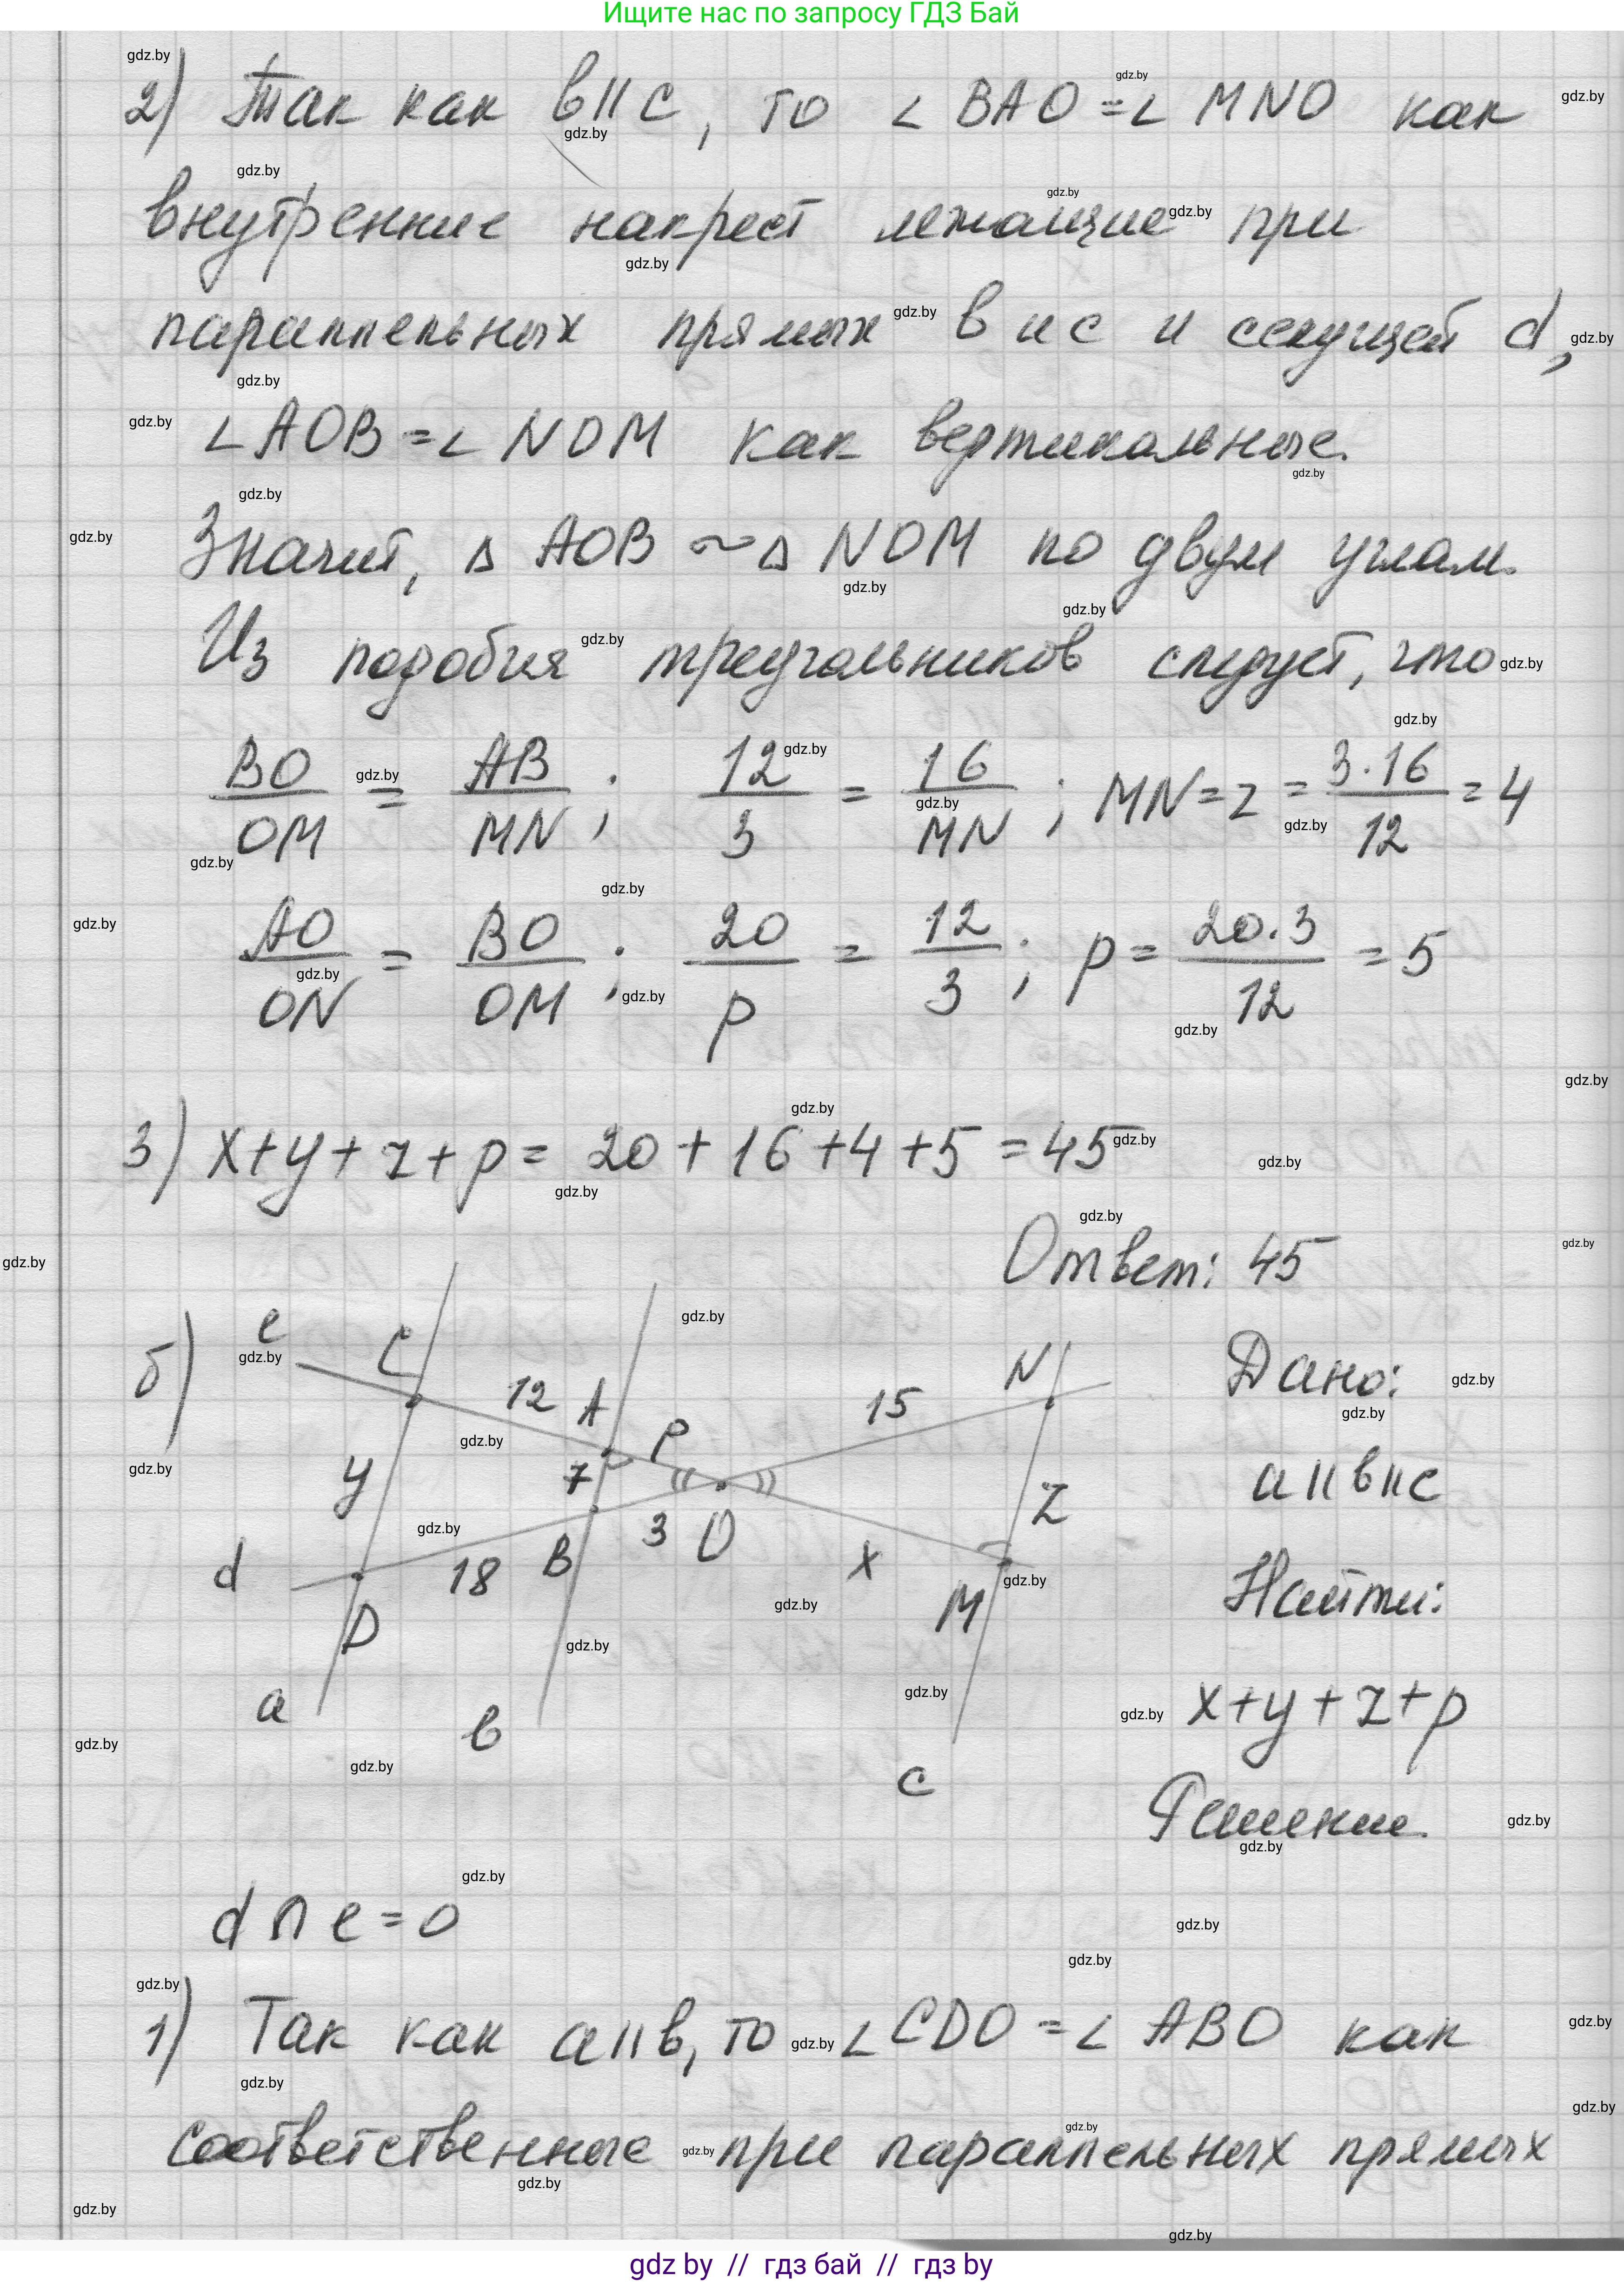 Ищите нас по запросу ГДЗ Бай
2) Так как в||с, то ∠ BAO = ∠ MNO как
внутренние накрест лежащие при
параллельных прямых в и с и секущей d,
∠ AOB = ∠ NOM как вертикальные.
Значит, Δ AOB ~ Δ NOM по двум углам.
Из подобия треугольников следует, что
BO/OM = AB/MN ; 12/3 = 16/MN ; MN = z = 3·16/12 = 4
AO/ON = BO/OM ; 20/p = 12/3 ; p = 20·3/12 = 5
3) x+y+z+p = 20+16+4+5 = 45
Ответ: 45
б) e C 12 A P 15 N Дано:
y 7 a||в||с
3 O z
d 18 B x Найти:
D M
a в x+y+z+p
c Решение.
d ∩ e = O
1) Так как а||в, то ∠ CDO = ∠ ABO как
соответственные при параллельных прямых
gdz by // гдз бай // гдз by
gdz.by